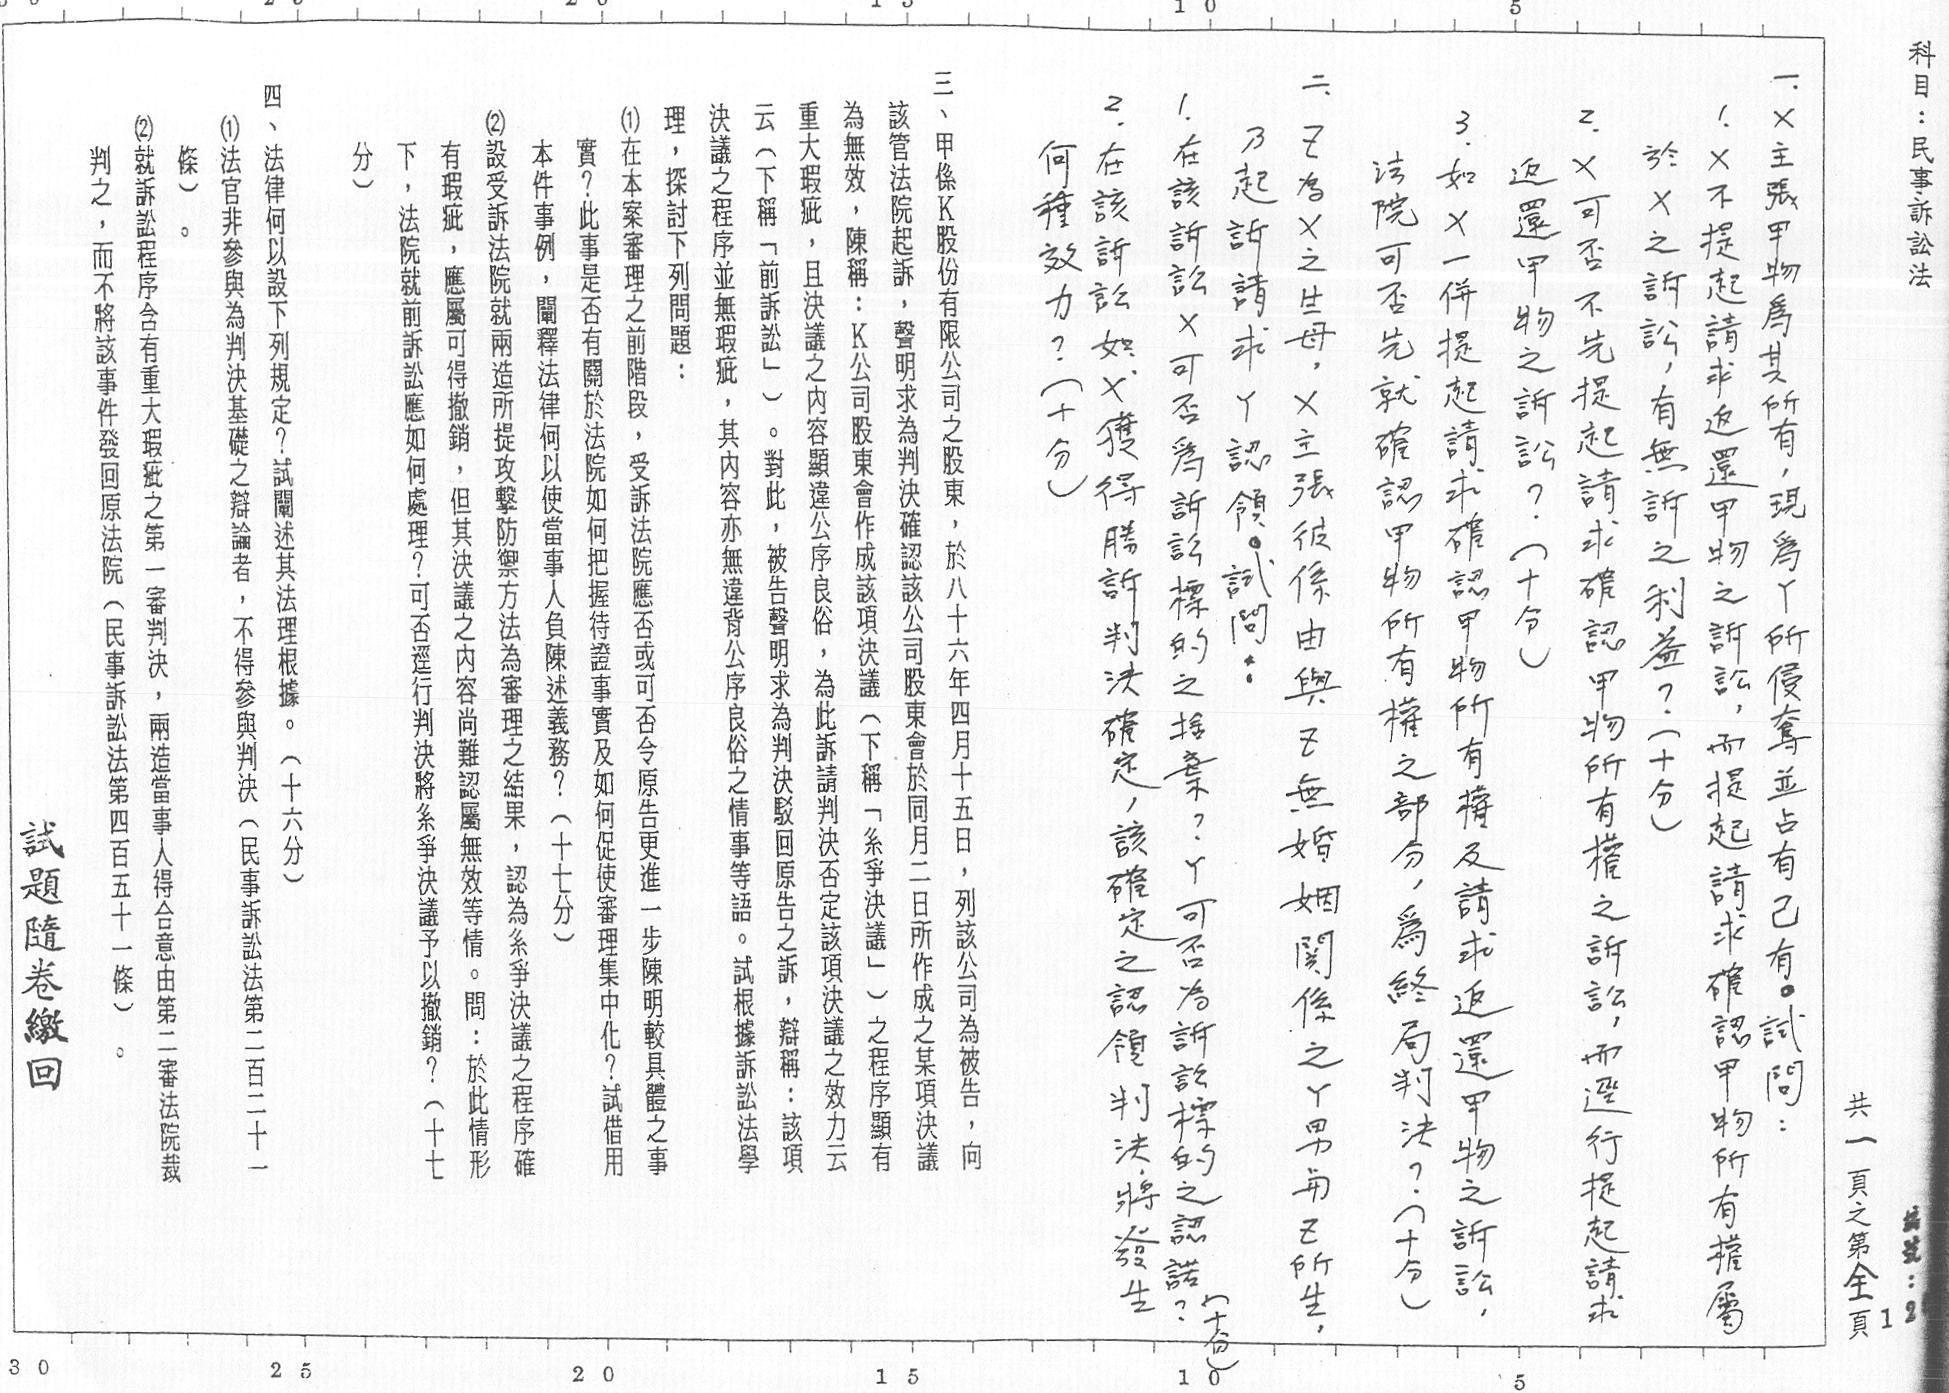 科目：民事訴訟法
共一頁之第全頁
一.X主張甲物為其所有,現為丫所侵奪並占有己有。試問：
1.X不提起請求返還甲物之訴訟,而提起請求確認甲物所有權屬
於X之訴訟,有無訴之利益？(十分)
2.X可否不先提起請求確認甲物所有權之訴訟,而逕行提起請求
返還甲物之訴訟？(十分)
3.如X一併提起請求確認甲物所有權及請求返還甲物之訴訟,
法院可否先就確認甲物所有權之部分,為終局判決？(十分)
二.Z為X之生母,X主張彼係由與Z無婚姻關係之丫男與Z所生,
乃起訴請求丫認領。試問：
1.在該訴訟X可否為訴訟標的之捨棄？丫可否為訴訟標的之認諾？(十分)
2.在該訴訟如X獲得勝訴判決確定,該確定之認領判決將發生
何種效力？(十分)
三、甲係K股份有限公司之股東，於八十六年四月十五日，列該公司為被告，向
該管法院起訴，聲明求為判決確認該公司股東會於同月二日所作成之某項決議
為無效，陳稱：K公司股東會作成該項決議（下稱「系爭決議」）之程序顯有
重大瑕疵，且決議之內容顯違公序良俗，為此訴請判決否定該項決議之效力云
云（下稱「前訴訟」）。對此，被告聲明求為判決駁回原告之訴，辯稱：該項
決議之程序並無瑕疵，其內容亦無違背公序良俗之情事等語。試根據訴訟法學
理，探討下列問題：
⑴在本案審理之前階段，受訴法院應否或可否令原告更進一步陳明較具體之事
實？此事是否有關於法院如何把握待證事實及如何促使審理集中化？試借用
本件事例，闡釋法律何以使當事人負陳述義務？（十七分）
⑵設受訴法院就兩造所提攻擊防禦方法為審理之結果，認為系爭決議之程序確
有瑕疵，應屬可得撤銷，但其決議之內容尚難認屬無效等情。問：於此情形
下，法院就前訴訟應如何處理？可否逕行判決將系爭決議予以撤銷？（十七
分）
四、法律何以設下列規定？試闡述其法理根據。（十六分）
⑴法官非參與為判決基礎之辯論者，不得參與判決（民事訴訟法第二百二十一
條）。
⑵就訴訟程序含有重大瑕疵之第一審判決，兩造當事人得合意由第二審法院裁
判之，而不將該事件發回原法院（民事訴訟法第四百五十一條）。
試題隨卷繳回